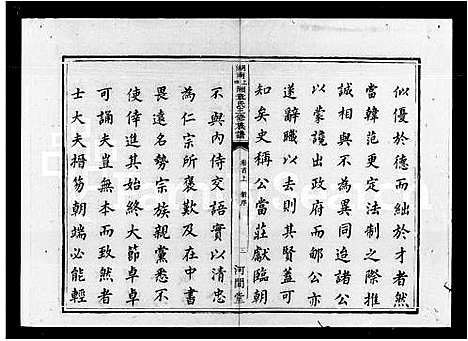 似優於德而絀於才者然
當韓范更定法制之際推
誠相與不為異同迨諸公
以蒙譏出政府而郇公亦
遂辭職以去則其賢蓋可
知矣史稱公當莊獻臨朝
卷首上 舊序 三 河間堂
不與內侍交語實以清忠
為仁宗所褒歎及在中書
畏遠名勢宗族親黨悉不
使倖進其始終大節卓卓
可誦夫豈無本而致然者
士大夫搢笏朝端必能輕